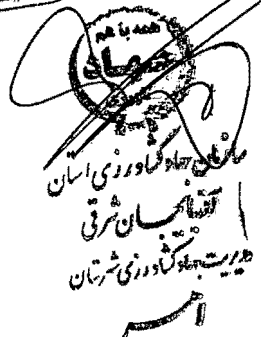 همه با هم
جهاد
سازمان جهاد کشاورزی استان
آذربایجان شرقی
مدیریت جهاد کشاورزی شهرستان
اهر